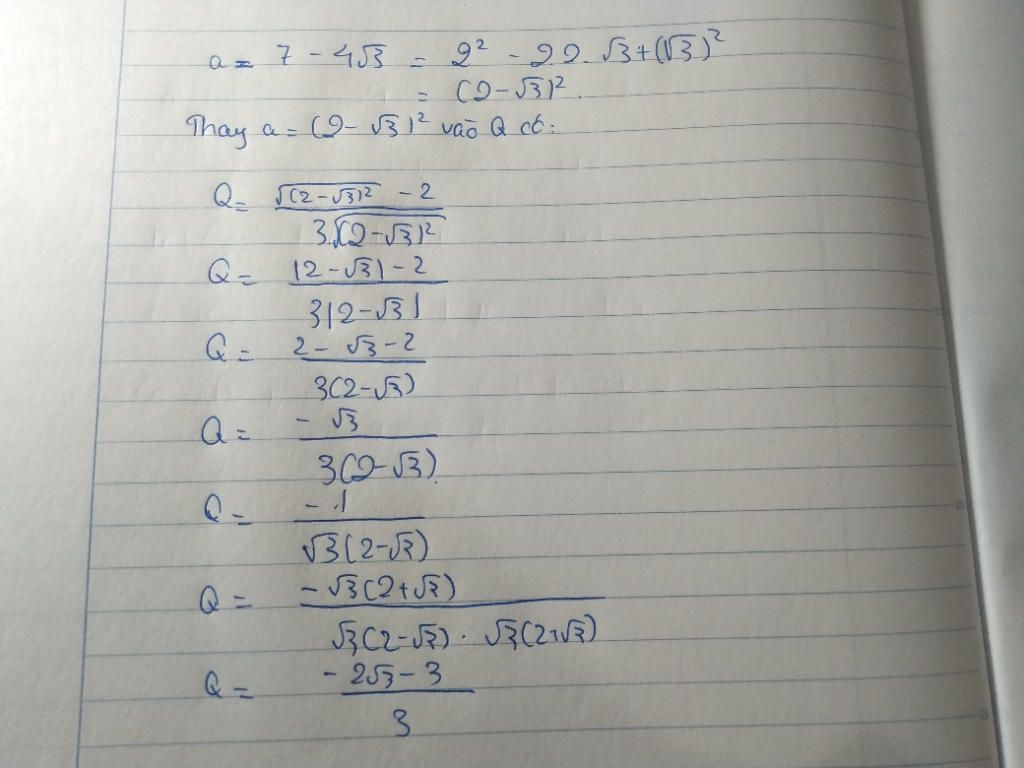 a = 7 - 4√3 = 2² - 2.2.√3+(√3)²
= (2-√3)².
Thay a = (2-√3)² vào Q có:
Q = (√((2-√3)²) - 2) / (3.√((2-√3)²))
Q = (|2-√3| - 2) / (3|2-√3|)
Q = (2-√3-2) / (3(2-√3))
Q = (-√3) / (3(2-√3))
Q = (-1) / (√3(2-√3))
Q = (-√3(2+√3)) / (√3(2-√3) . √3(2+√3))
Q = (-2√3-3) / 3